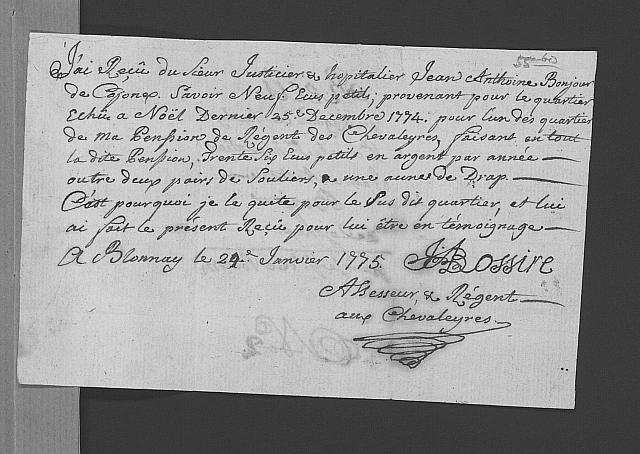 J'ai Reçû du Sieur Justicier & hopitalier Jean Anthoine Bonjour
de Cojonex. Savoir Neuf Ecus petits; provenant pour le quartier
Echû a Noël Dernier 25.e Decembre 1774. pour l'un des quartier
de ma Pension de Régent des Chevaleyres, faisant en tout
la dite Pension, Trente Six Ecus petits en argent par année
outre deux pairs de Souliers, & une aunes de Drap.
C'est pourquoi je le quite pour le Sus dit quartier, et lui
ai fait le présent Reçû pour lui être en témoignage
A Blonnay le 24.e Janvier 1775. Bossire
Assesseur, & Régent
aux Chevaleyres.